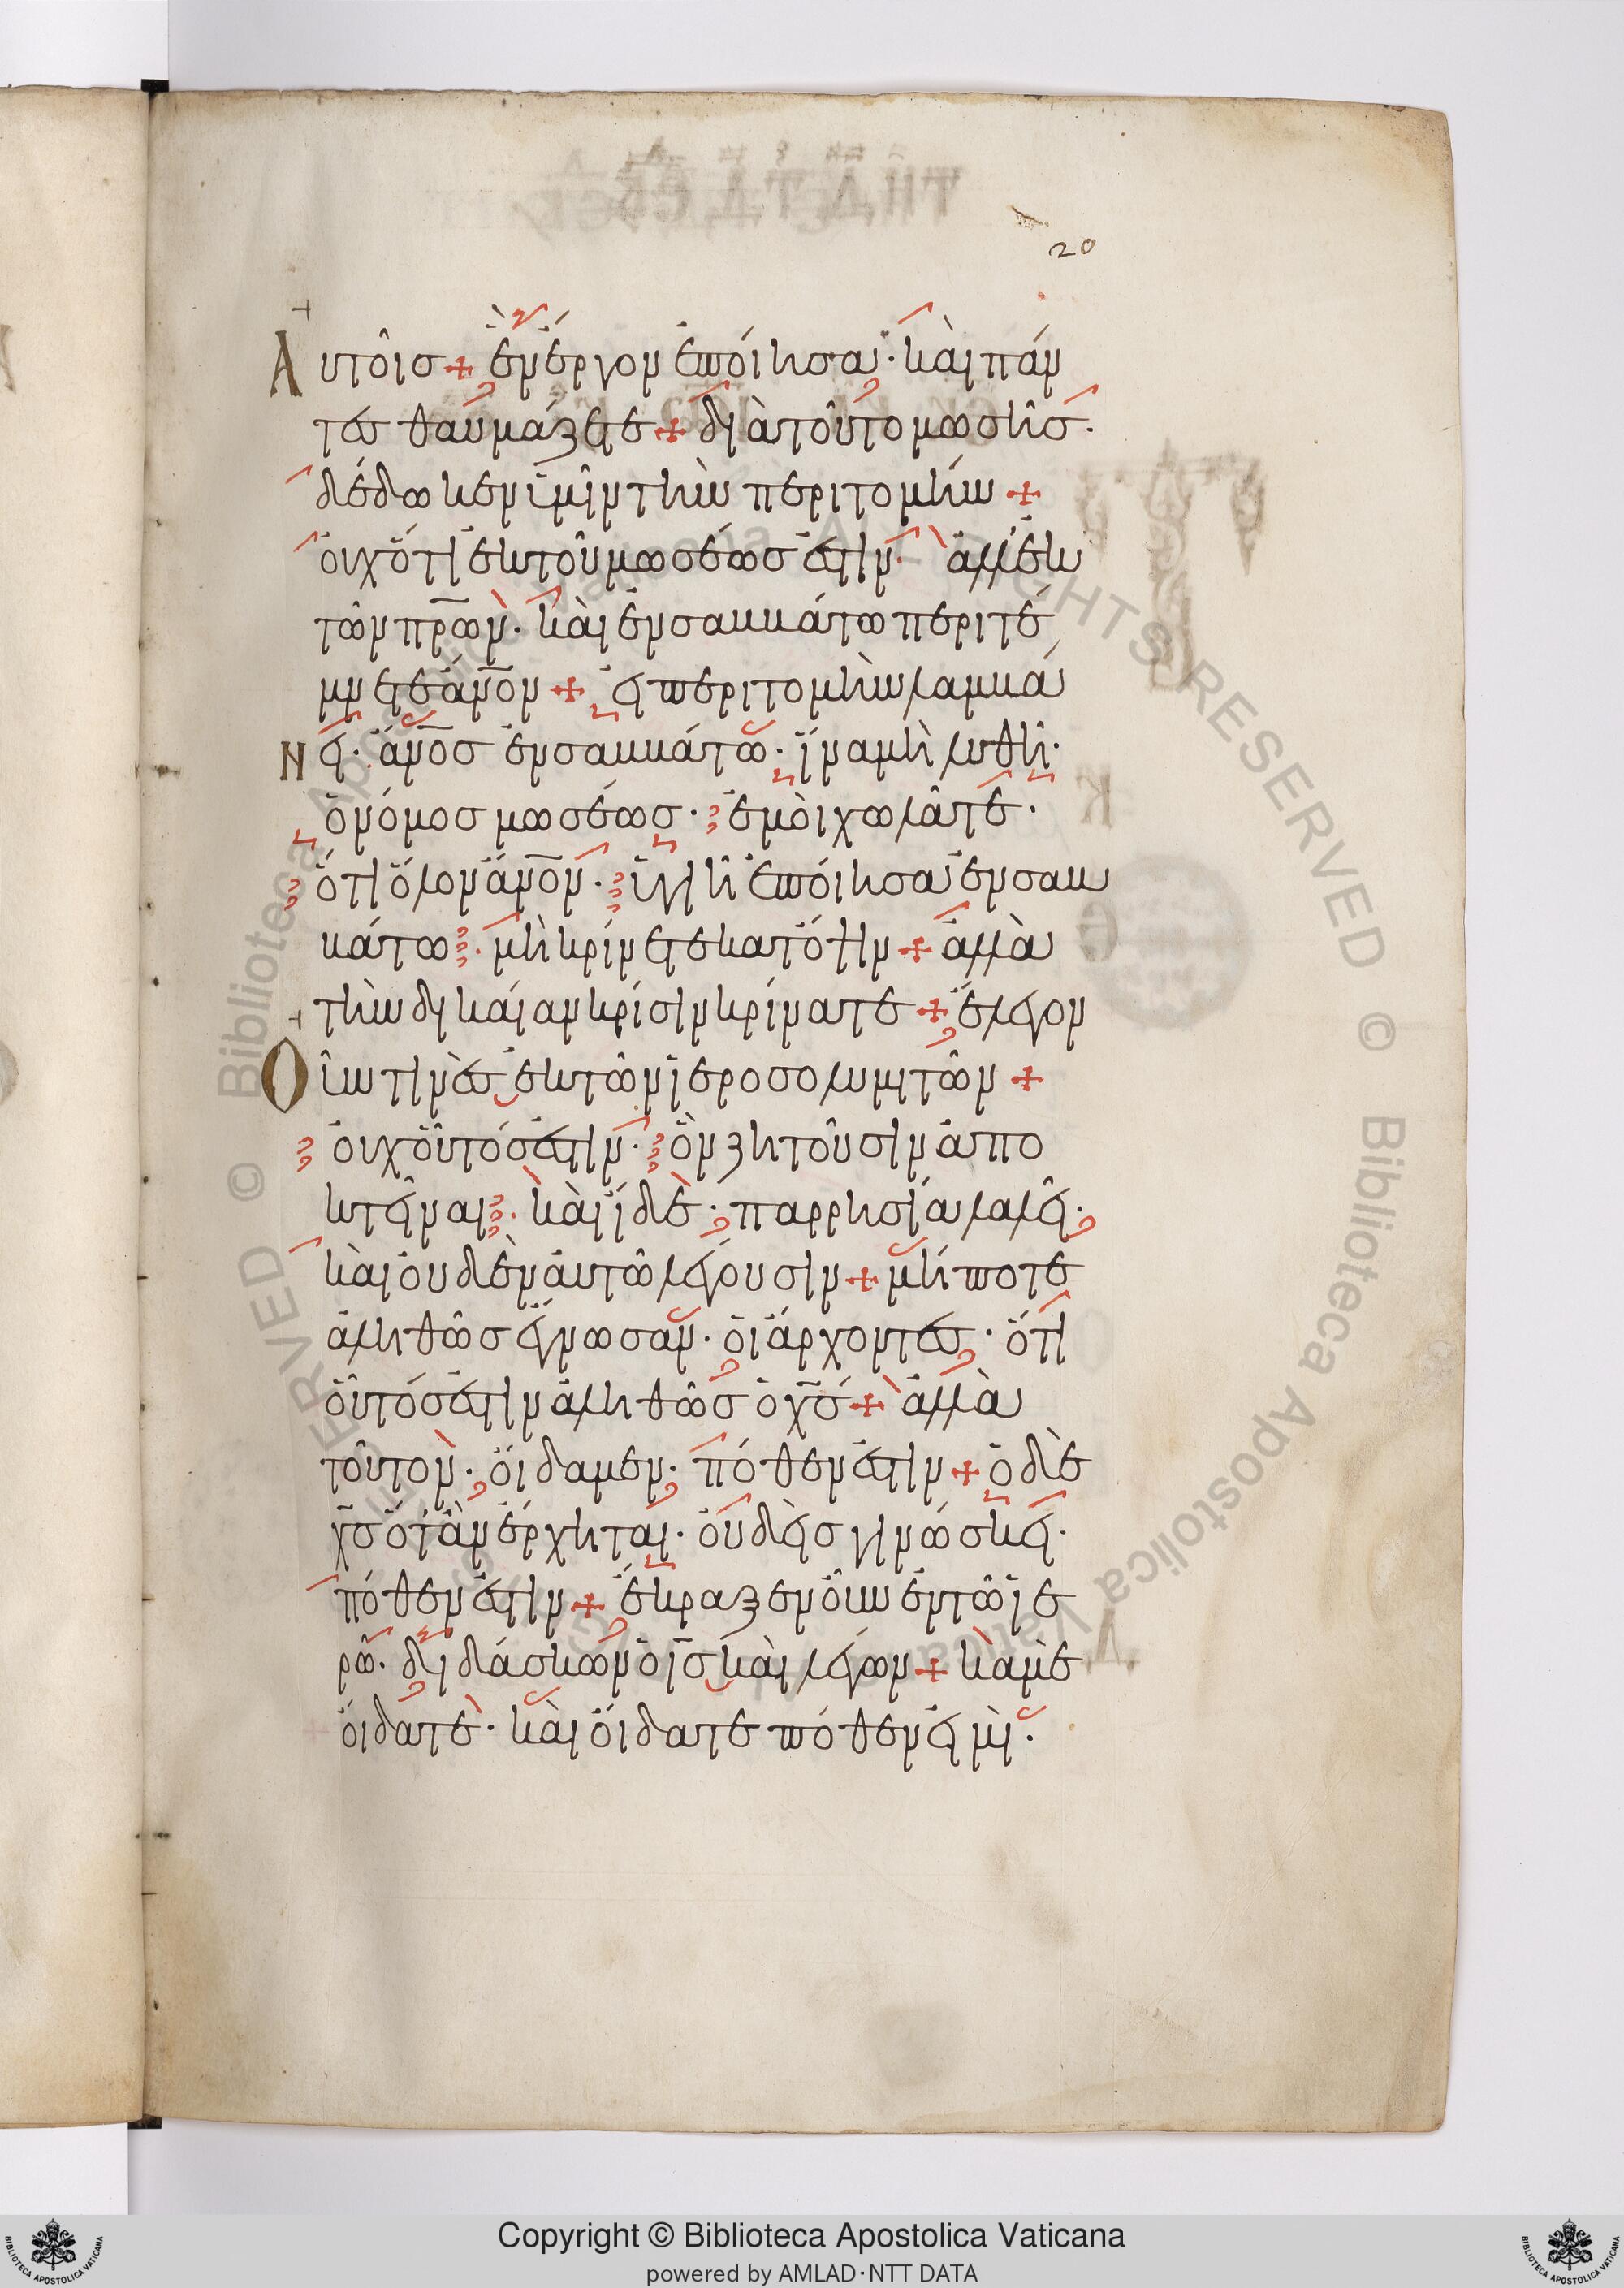 20
Αυτοῖσ + ἓν ἔργον ἐποίησα· καὶ πάν
τεσ θαυμάζετε + διὰ τοῦτο μωσῆσ·
δέδωκεν ὑμῖν τὴν περιτομήν +
οὐχ ὅτι ἐκ τοῦ μωσέωσ ἐστὶν· ἀλλ' ἐκ
τῶν πρ̅ων· καὶ ἐν σαββάτω περιτέ
μνετε ἀν̅ον + εἰ περιτομὴν λαμβά
Νει· ἀν̅οσ ἐν σαββάτω· ἵνα μὴ λυθῆ·
ὁ νόμοσ μωσέωσ· ἐμοὶ χωλᾶτε·
ὅτι ὅλον ἀν̅ον· ὑγιῆ ἐποίησα ἐν σαβ
βάτω· μὴ κρίνετε κατ' ὄψιν + ἀλλὰ
τὴν δικαίαν κρίσιν κρίνατε + ἔλεγον
Οὖν τινὲσ ἐκ τῶν ἱεροσολυμιτῶν +
οὐχ οὗτόσ ἐστιν· ὃν ζητοῦσιν ἀπο
κτεῖναι· καὶ ἴδε· παρρησία λαλεῖ·
καὶ οὐδὲν αὐτῶ λέγουσιν + μήποτε
ἀληθῶσ ἔγνωσαν· οἱ ἄρχοντεσ· ὅτι
οὗτόσ ἐστιν ἀληθῶσ ὁ χ̅σ + ἀλλὰ
τοῦτον· οἴδαμεν· πόθεν ἐστὶν + ὁ δὲ
χ̅σ ὅταν ἔρχηται· οὐδεὶσ γινώσκει·
πόθεν ἐστὶν + ἔκραζεν οὖν ἐν τῶ ἱε
ρῶ· διδάσκων ὁ ι̅σ καὶ λέγων + κἀμὲ
οἴδατε· καὶ οἴδατε πόθεν εἰμὶ·
© Biblioteca Apostolica Vaticana ALL RIGHTS RESERVED
Copyright © Biblioteca Apostolica Vaticana
powered by AMLAD·NTT DATA